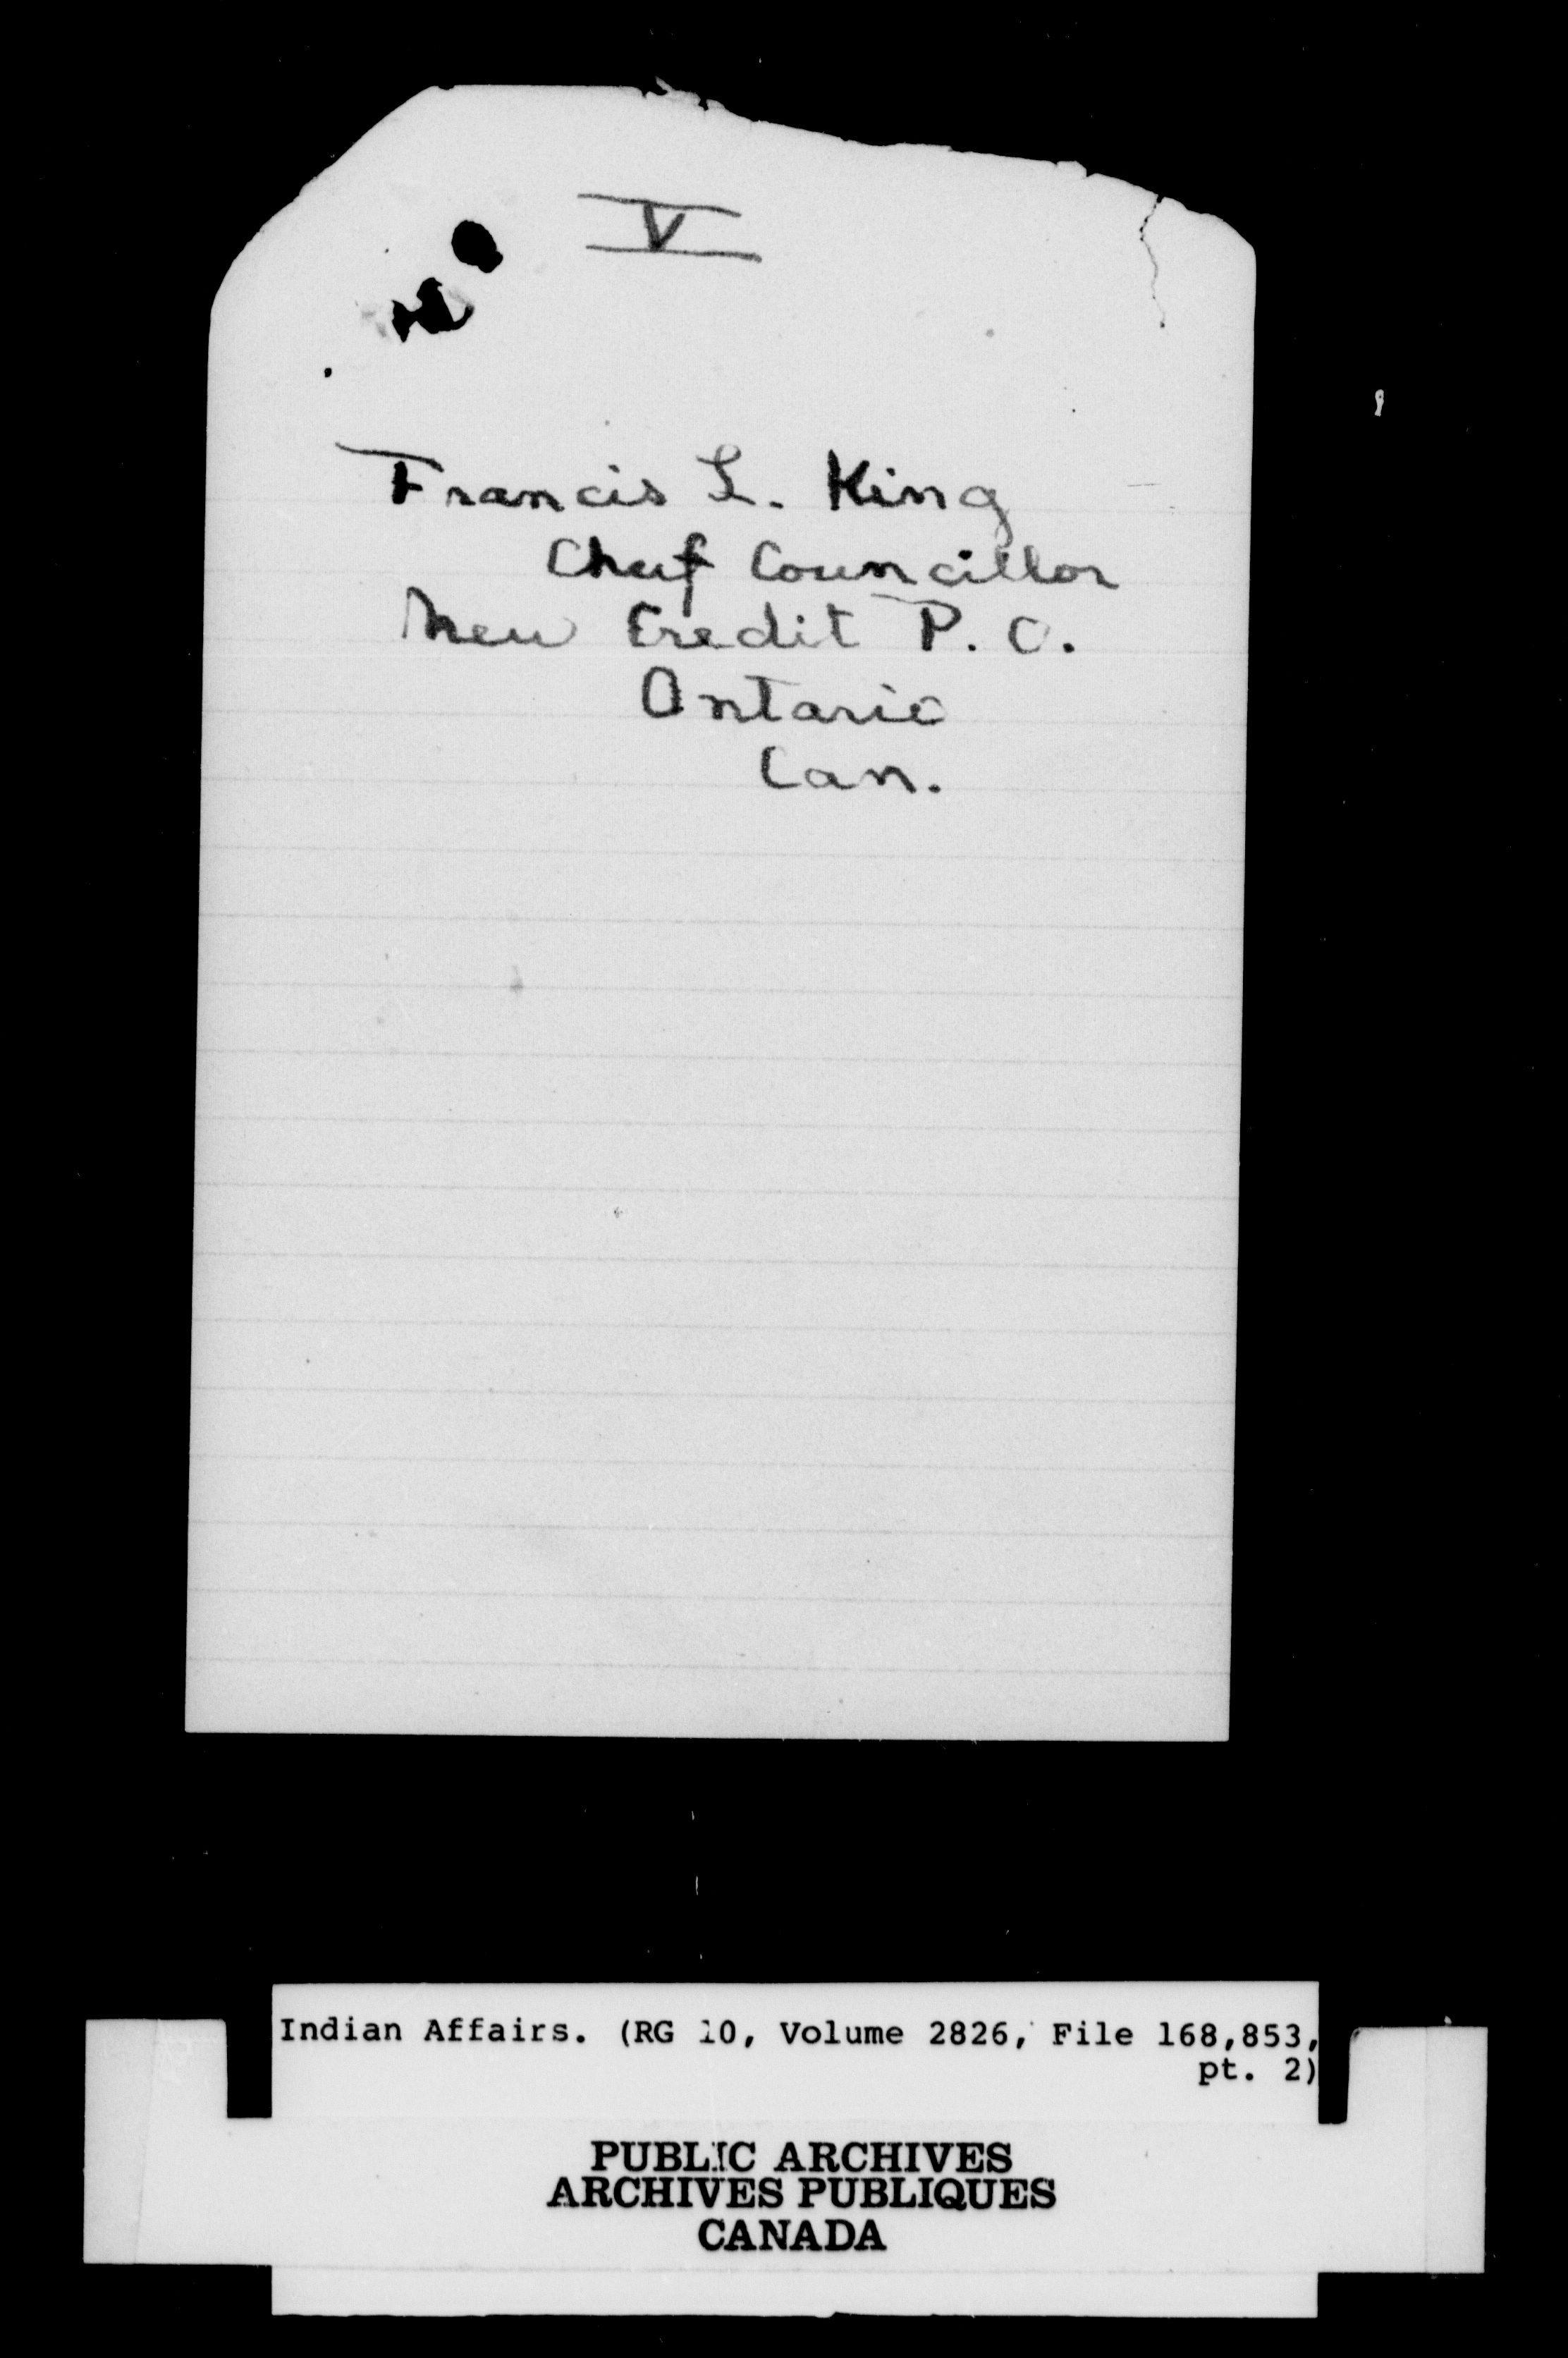 V
Francis L. King
Chief Councillor
New Credit P. O.
Ontario
Can.
Indian Affairs. (RG 10, Volume 2826, File 168,853,
pt. 2)
PUBLIC ARCHIVES
ARCHIVES PUBLIQUES
CANADA